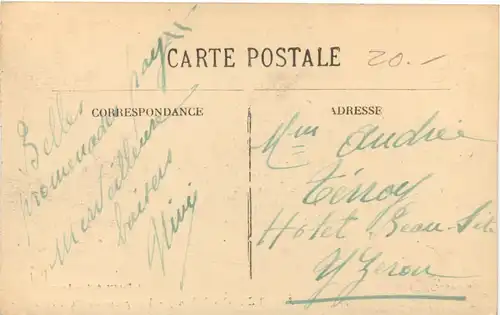 CARTE POSTALE
20.-
CORRESPONDANCE
Belles
promenades
Meilleurs
baisers
ADRESSE
Mme Andrée
Terroy
Hotel Beau-Site
Yzeron